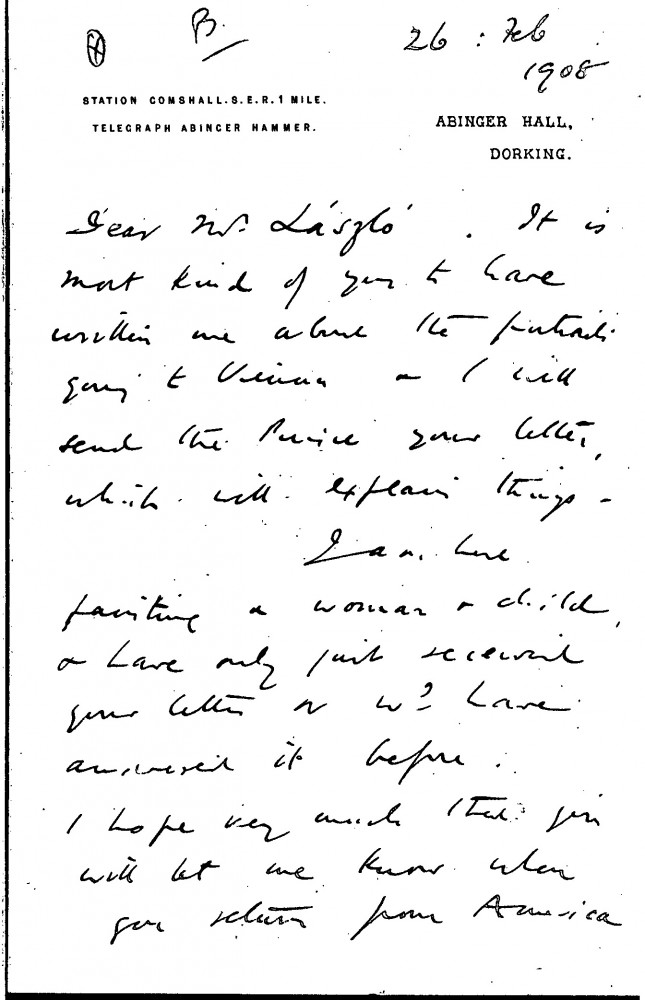 B.
26 : Feb
1908
STATION COMSHALL. S.E.R. 1 MILE.
TELEGRAPH ABINGER HAMMER.
ABINGER HALL,
DORKING.
Dear Mr. László. It is
most kind of you to have
written me about the portraits
going to Vienna & I will
send the Prince your letter,
which will explain things –
I am here
painting a woman & child,
& have only just received
your letter or wd. have
answered it before.
I hope very much that you
will let me know when
you return from America